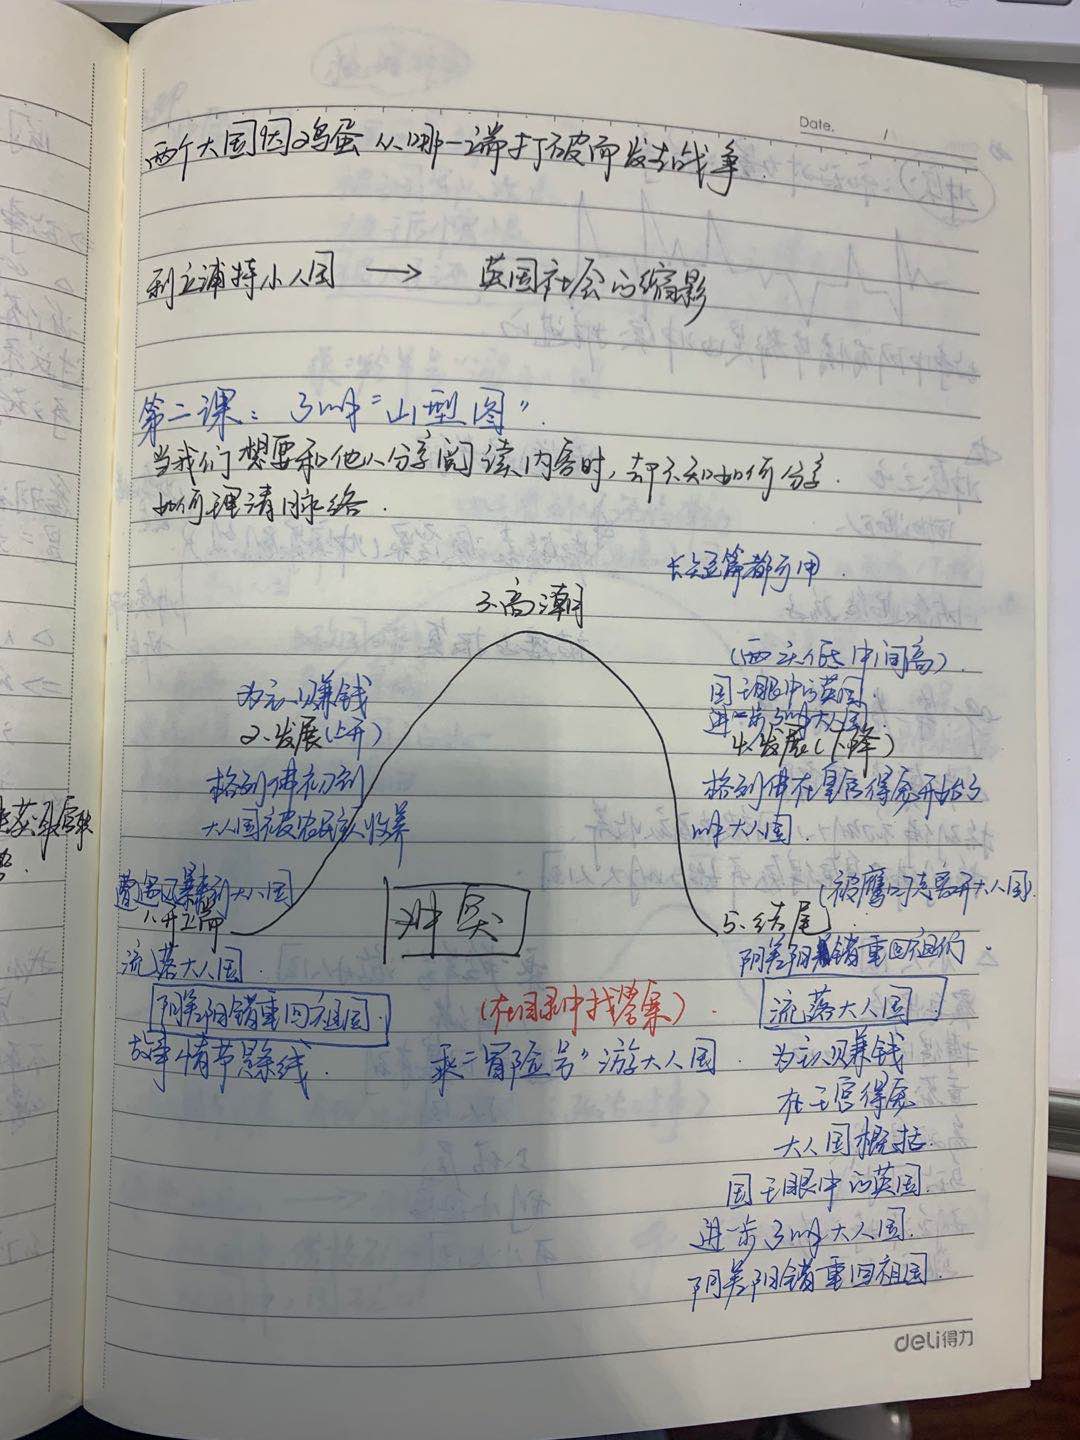 Date.
两个大国因鸡蛋从哪一端打破而发起战争.
利立浦特小人国 → 英国社会的缩影
第二课：了解“山型图”.
当我们想要和他人分享阅读内容时，却不知如何分享.
如何理清脉络.
长短篇都可用.
3.高潮
(两头低中间高)
为主人赚钱
国王眼中的英国.
进一步了解大人国.
2.发展(上升)
4.发展(下降)
格列佛初到
大人国被农民主人收养
格列佛在皇宫得宠开始了
解大人国.
遭遇风暴到大人国
1.开篇
冲突
5.结尾
(被鹰叼走离开大人国)
流落大人国.
阴差阳错重回祖国
阴差阳错重回祖国.
(在目录中找答案).
流落大人国
故事情节线.
乘“冒险号”游大人国.
为主人赚钱
在王宫得宠
大人国概括.
国王眼中的英国.
进一步了解大人国.
阴差阳错重回祖国.
deli得力